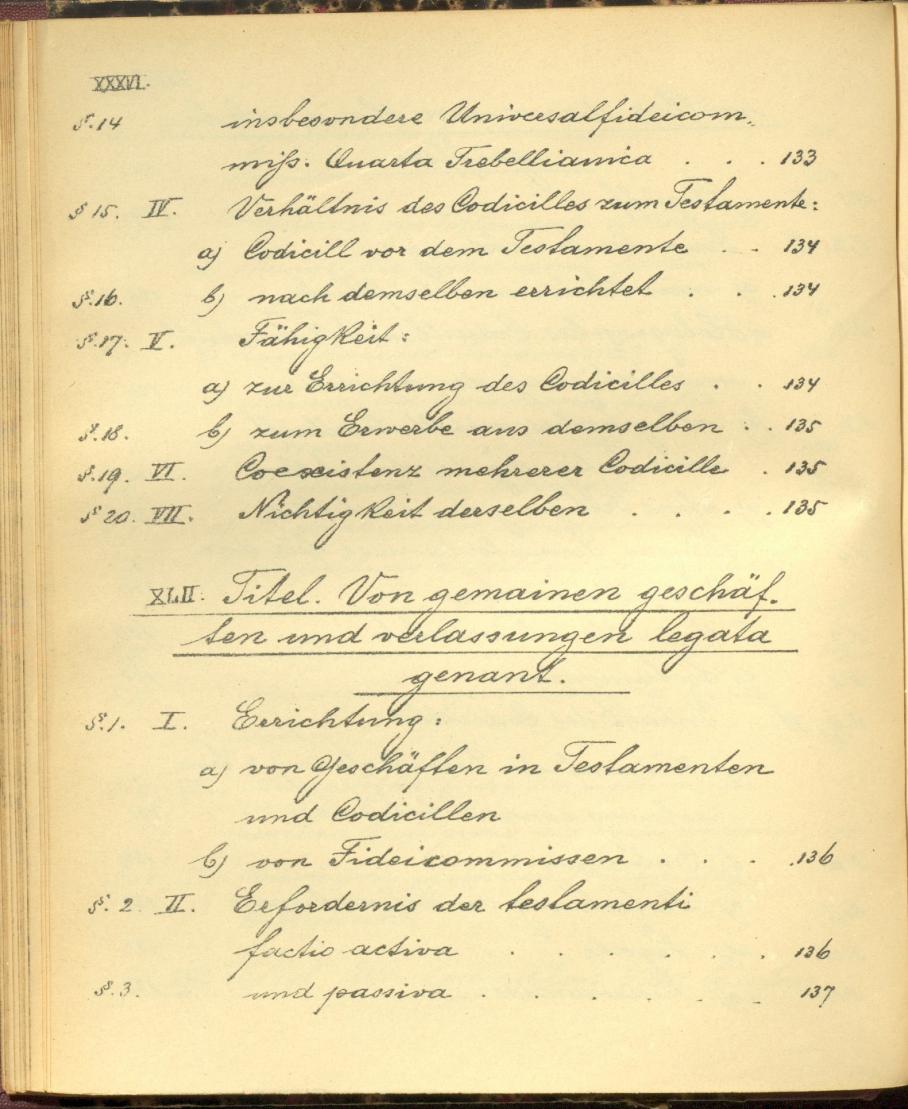 XXXVI.
§.14 insbesondere Universalfideicom-
miß. Quarta Trebellianica . . . 133
§ 15. IV. Verhältnis des Codicilles zum Testamente:
a) Codicill vor dem Testamente . . 134
§.16. b) nach demselben errichtet . . . 134
§.17. V. Fähigkeit:
a) zur Errichtung des Codicilles . . 134
§.18. b) zum Erwerbe aus demselben . . 135
§.19. VI. Coexistenz mehrerer Codicille . 135
§ 20. VII. Nichtigkeit derselben . . . . 135
XLII. Titel. Von gemainen geschäf-
ten und verlassungen legata
genant.
§.1. I. Errichtung:
a) von Geschäften in Testamenten
und Codicillen
b) von Fideicommissen . . . . 136
§. 2 II. Erfordernis der testamenti
factio activa . . . . . . 136
§. 3. und passiva . . . . . . 137